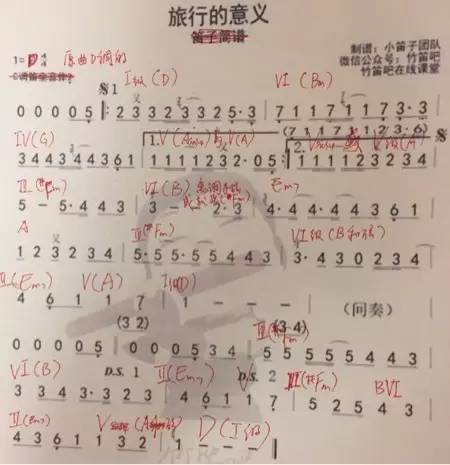 旅行的意义
笛子简谱
制谱：小笛子团队
1=D 4/4 原曲D调的
微信公众号：竹笛吧
竹笛吧在线课堂
𝄋1 I级(D) VI(Bm)
0 0 0 0 5 |: 2 3 3 2 3 2 3 3 2 5· 3 | 7 1 1 7 1 1 7 1 7 3· 3 |
(7 1 1 7 1 2 3· 6) 𝄋
IV(G) 1. V(A) 2. V级(A)
3 4 4 3 4 4 4 3 6 1 | 1 1 1 1 2 3 2· 0 5 :| 1 1 1 1 2 3 2 3 4
VI(B) Em7
5 - 5· 4 4 3 | 3 - 2· 3 | 4· 4· 4· 4 4 3 6 1 |
A VI级
1 2 3 2 3 4 | 5· 5 5 5 5 4 4 5 | 3· 4 3 0 2 3 4 |
II(Em7) V(A) I级(D)
4 6 1 1 7 | 1 - - - | （间奏）
(3 2) (3 4)
0 0 0 0 5 | 0 0 0 5 3 4 | 5 5 5 5 5 5 4 4 3 |
VI(B) D.S. 1 II(Em7) D.S. 2 III(#Fm) BVI
3 3 4 3· 3 2 3 | 4 6 1 1 7 | 5 2 5 4 3 |
II(Em7) D(I级)
4 3 6 1 1 3 2 | 1 - - - |